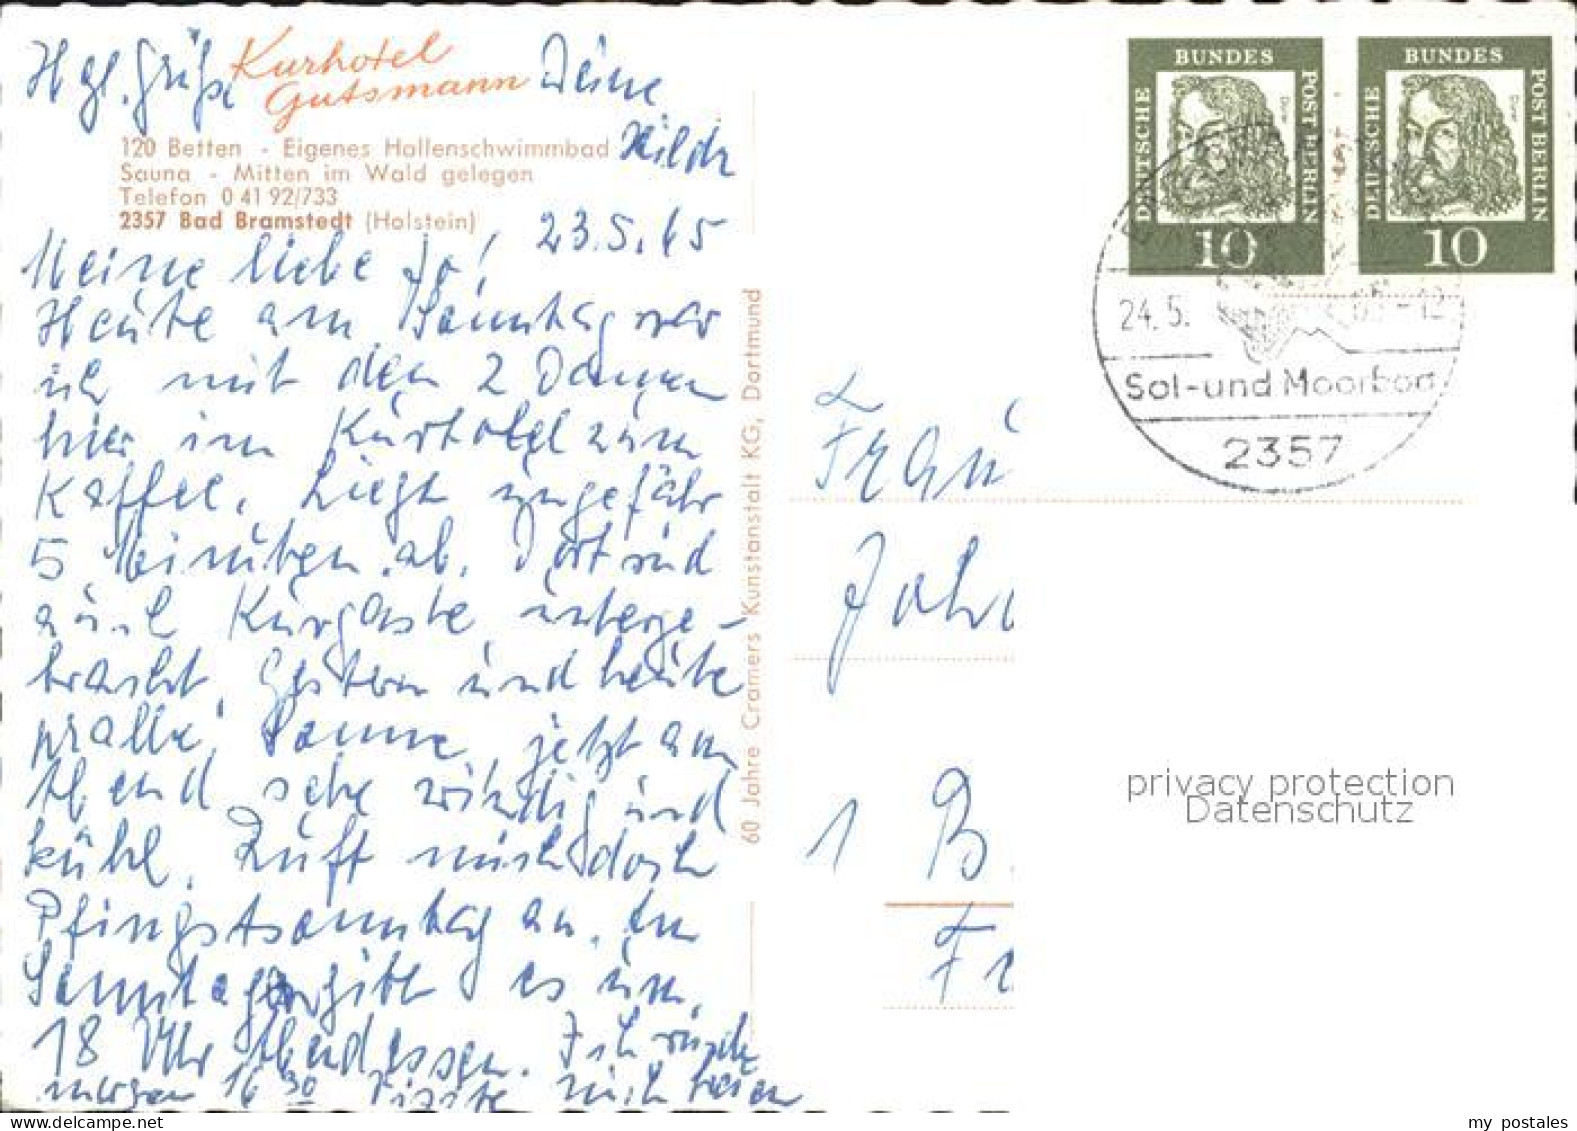 Hgl. Grüße
Kurhotel
Gutsmann
Deine
Hilde
120 Betten - Eigenes Hallenschwimmbad
Sauna - Mitten im Wald gelegen
Telefon 0 41 92/733
2357 Bad Bramstedt (Holstein)
23.5.65
Meine liebe Jo!
Heute am Sonntag war
ich mit den 2 Damen
hier im Kurhotel zum
Kaffee. Liegt ungefähr
5 Minuten ab. Dort sind
auch Kurgäste unterge-
bracht. Gestern und heute
pralle Sonne, jetzt am
Abend sehr windig und
kühl. Ruft mich doch
Pfingstsonntag an. An
Sonntagen gibt es um
18 Uhr Abendessen. Ich würde
morgen 16 30 mich freuen
60 Jahre Cramers Kunstanstalt KG, Dortmund
DEUTSCHE
BUNDES
POST BERLIN
Dürer
10
DEUTSCHE
BUNDES
POST BERLIN
Dürer
10
24.5.65-12
Sol-und Moorbad
2357
Frau
Joh
1 B
privacy protection
Datenschutz
my postales